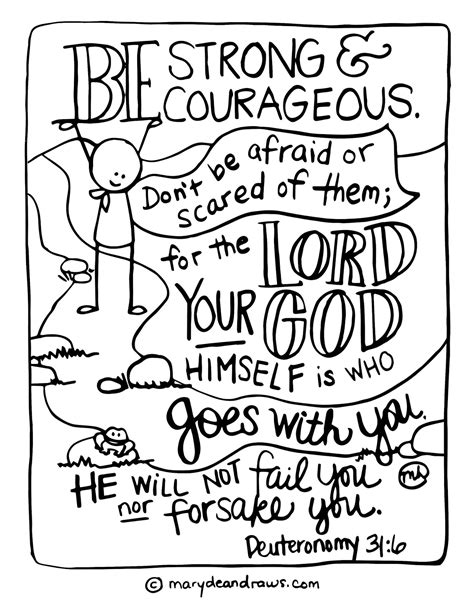 BE STRONG &
COURAGEOUS.
Don't be afraid or
scared of them;
for the LORD
YOUR GOD
HIMSELF is WHO
goes with you.
HE WILL NOT fail you
nor forsake you.
Deuteronomy 31:6
© marydeandraws.com